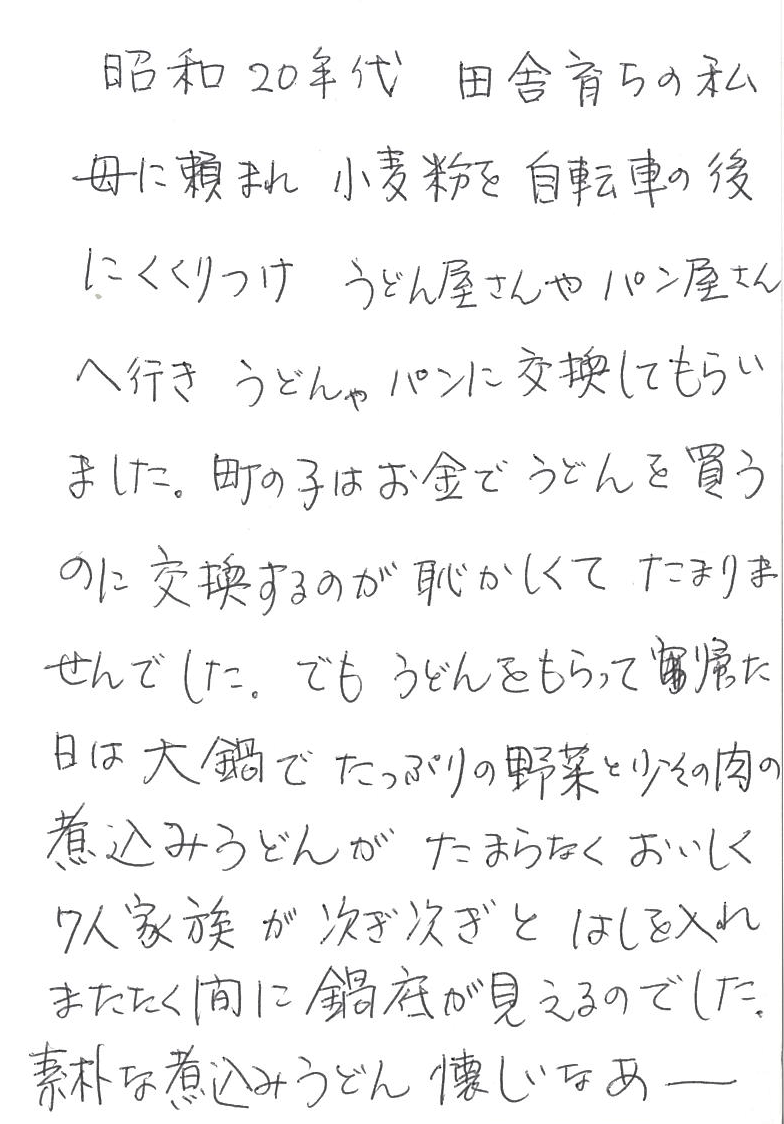 昭和20年代 田舎育ちの私
母に頼まれ 小麦粉を自転車の後
にくくりつけ うどん屋さんや パン屋さん
へ行き うどんや パンに 交換してもらい
ました。町の子はお金で うどんを買う
のに交換するのが 恥かしくて たまりま
せんでした。でも うどんをもらって帰った
日は 大鍋で たっぷりの野菜と少々の肉の
煮込みうどんが たまらなく おいしく
7人家族 が 次ぎ次ぎと はしを入れ
またたく間に 鍋底が見えるのでした。
素朴な煮込みうどん 懐しいなあー